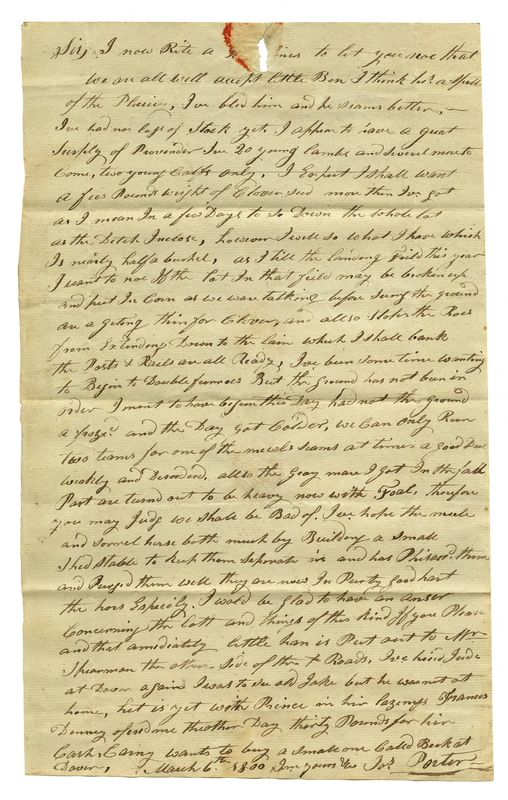 Sir, I now Rite a lines to let you noe that
we are all well accept little Ben I think has a Spell
of the Pluricy, I've bled him and he seams better, —
I've had noe loss of Stock yet, I appear to have a great
Surply of Provender I've 20 young lambs and several more to
Come, two young Calfs only, I Expect I shall want
a few Pounds weight of Clover seed more then I've got
as I mean In a few Days to So Down the whole lot
as the Ditch Inclose, however I will so what I have which
Is nearly half a bushel, as I till the landing Feild this year
I want to noe If the lot In that field may be broken up
and put In Corn as we ware talking before sum of the ground
are a giting thin for Clover, and allso Stake the Roes
from Down to the lain which I shall bank
the Posts & Rails are all Ready, I've been some time wanting
to Begin to Double furroes But the Ground has not been in
order I ment to have begun this Day had not the ground
a froze and the Day got Colder, we Can only Run
two teams for one of the mules seams at times a good Deal
weakly and Disorderd, allso the Gray mare I got In the fall
Part are turnd out to be heavy now with Foal, therefore
you may Judg we Shall be Bad of. I've hope the mule
and sorrel horse both much by Building a small
Shed Stable to keep them Seperate in and has them
and Purged them well they are now In Purty good hart
the hors Especily. I would be glad to have an anser
Concerning the lott and things of this kind If you Please
and that amediately little han is Put out to Mr
Spearman the other Side of the Roads, I've hired Jude
at Dover again I was to see old Jake but he was not at
home, het is yet with Prince in hir lazeness Francis
Denney ofered me the other Day thirty Pounds for hir
Cash, Carny wants to buy a Small one Caled Beck at
Dover, March 6th 1800 I'm yours &c Jos. Porter